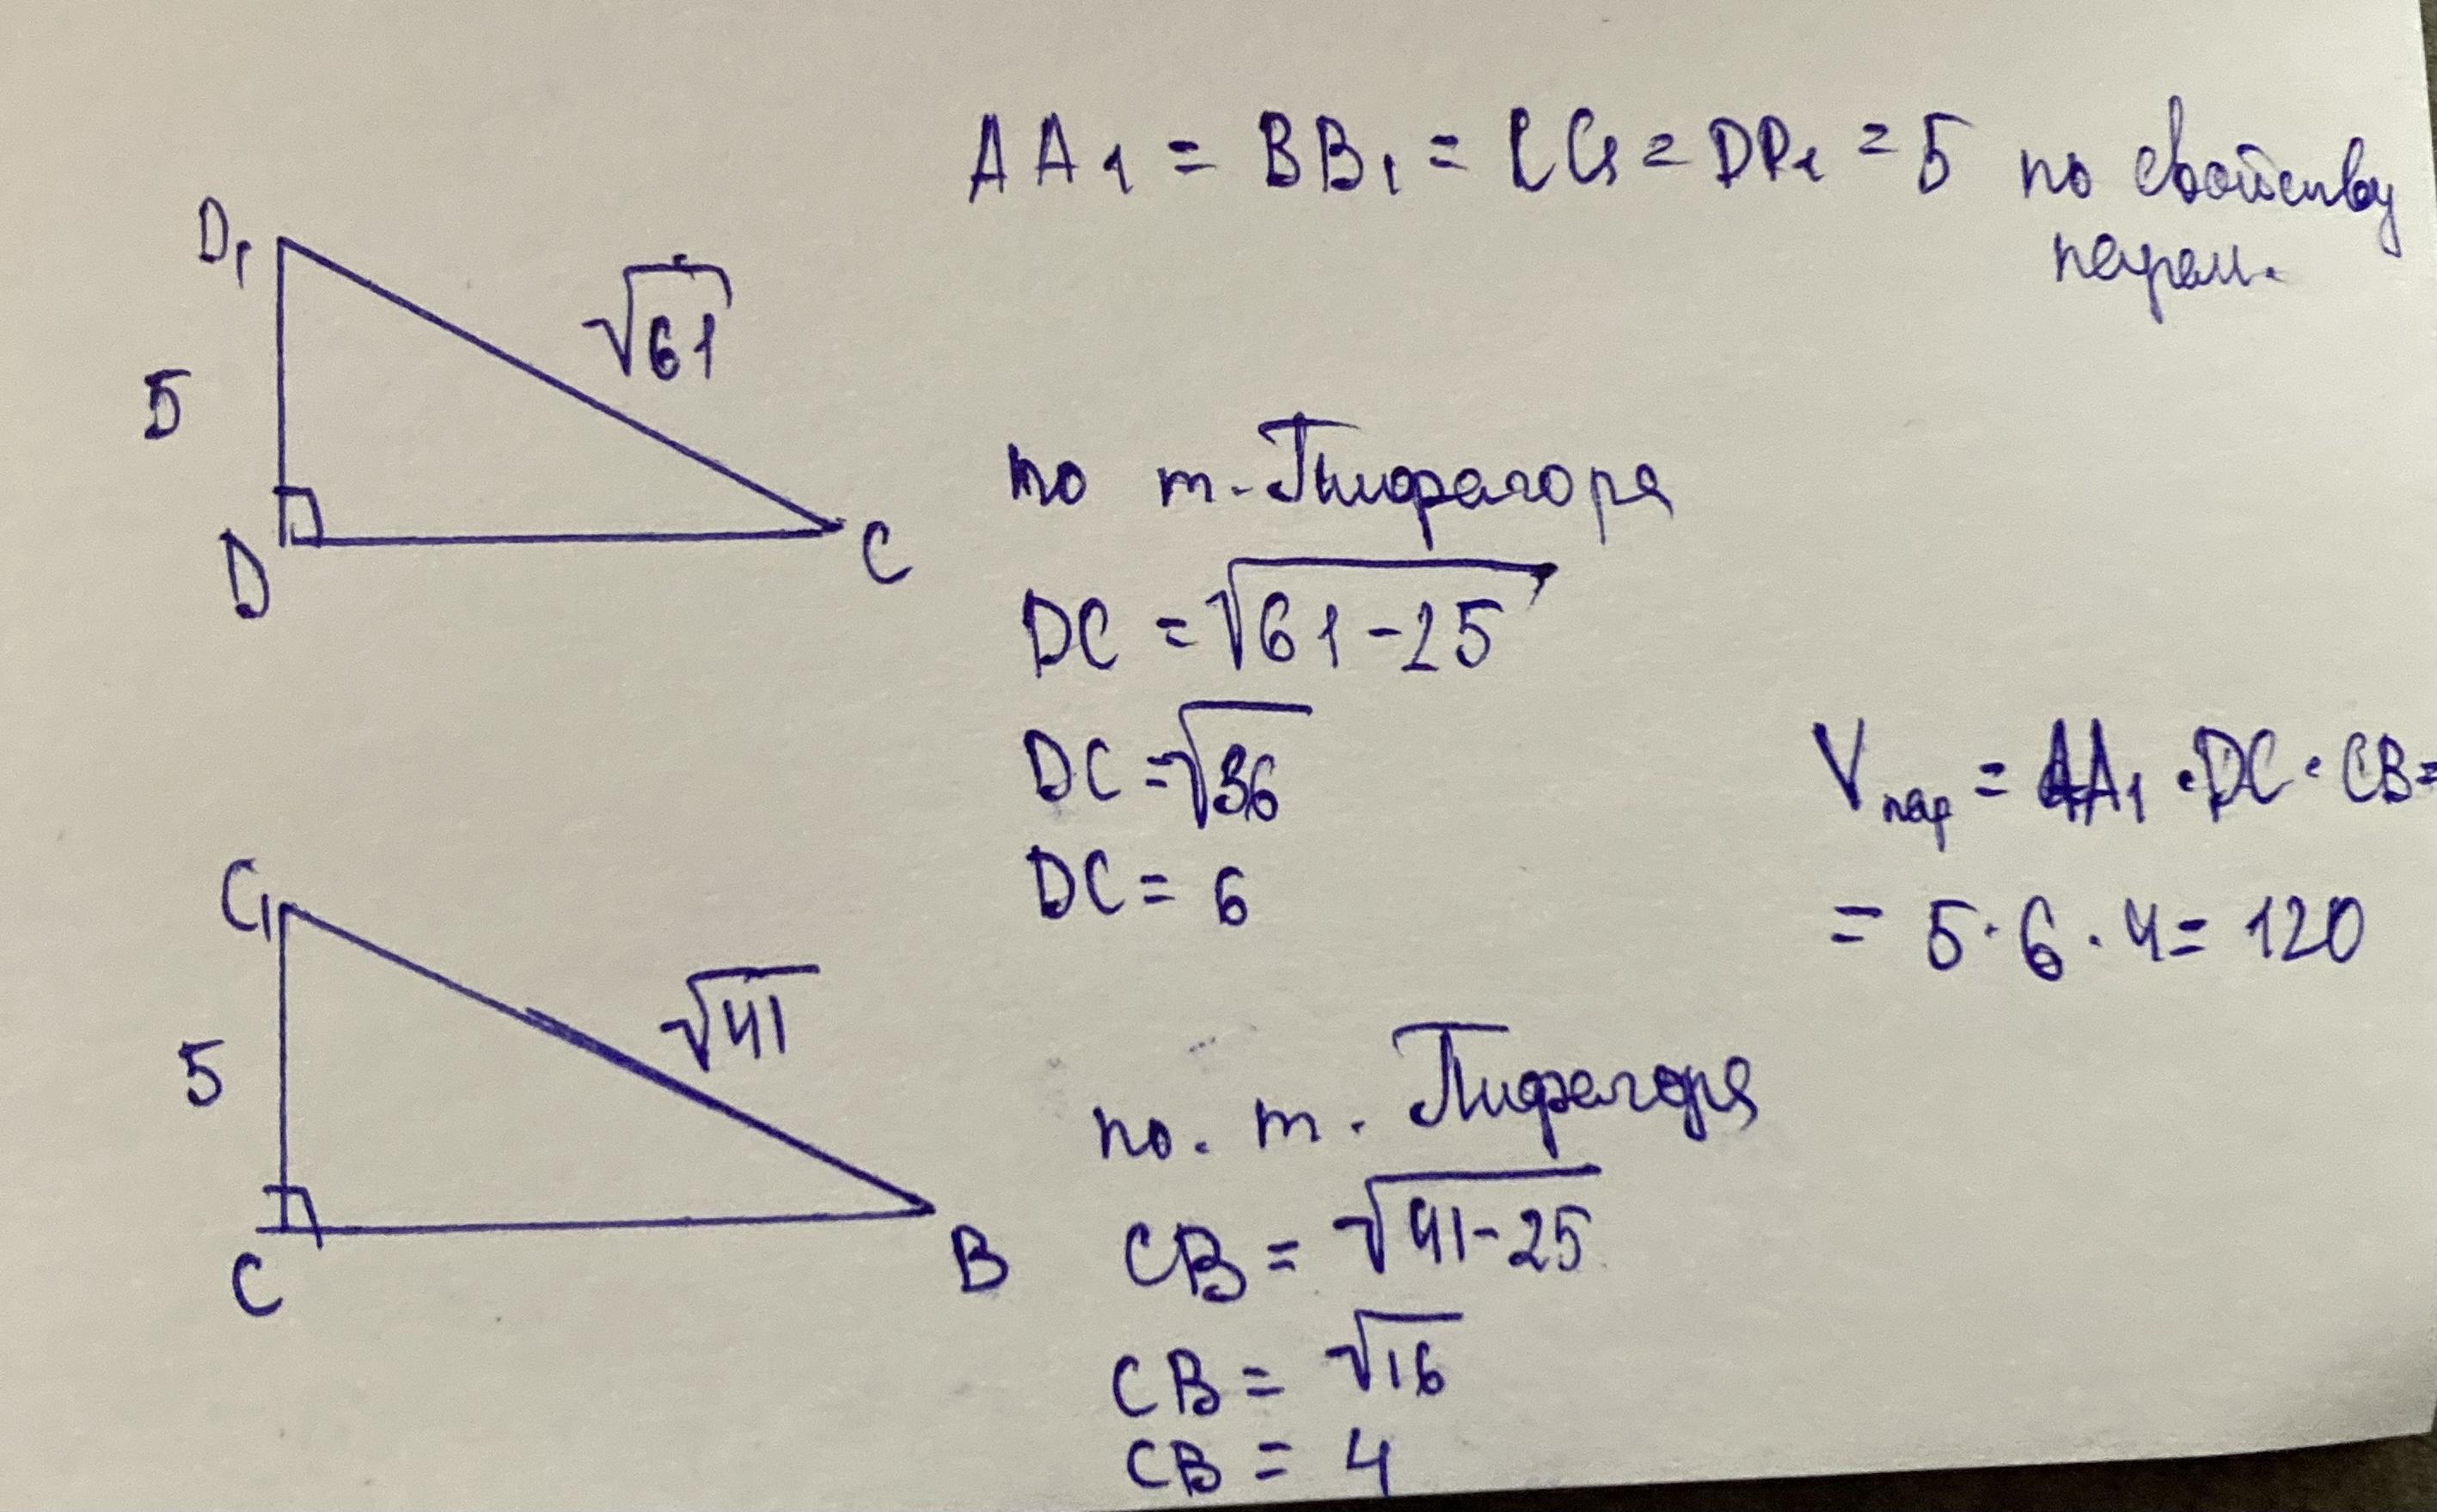 AA₁ = BB₁ = CC₁ = DD₁ = 5 по свойству
парал.
D₁
√61
5
D
C
по т. Пифагора
DC = √61-25
DC = √36
DC = 6
Vпар = AA₁ · DC · CB =
= 5 · 6 · 4 = 120
C₁
√41
5
C
B
по. т. Пифагора
CB = √41-25
CB = √16
CB = 4